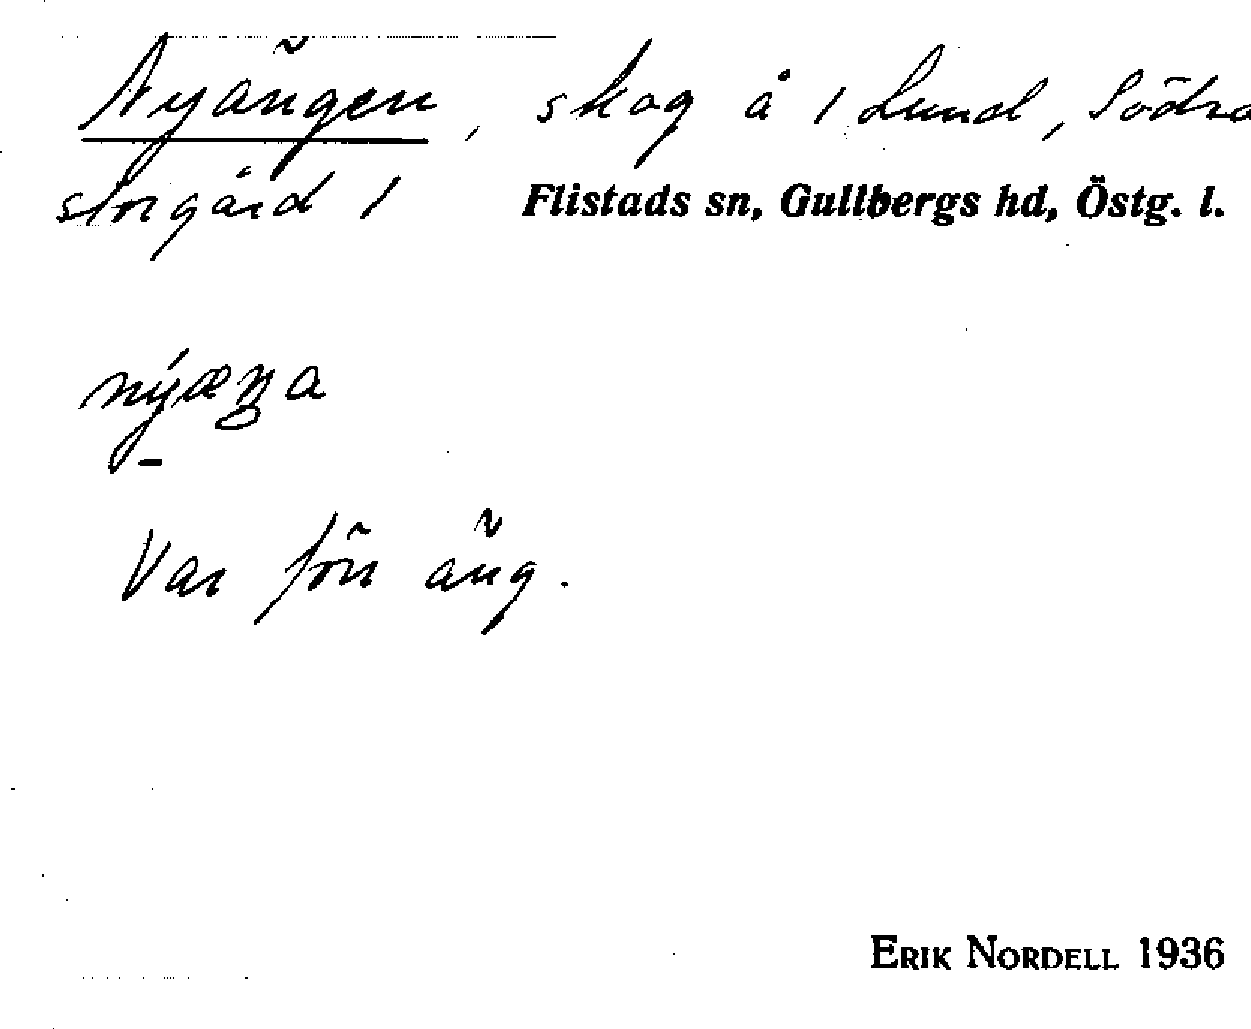 Nyängen, skog å 1 Lund, Södra
storgård 1 Flistads sn, Gullbergs hd, Östg. l.
nýæŋa
Var förr äng.
ERIK NORDELL 1936